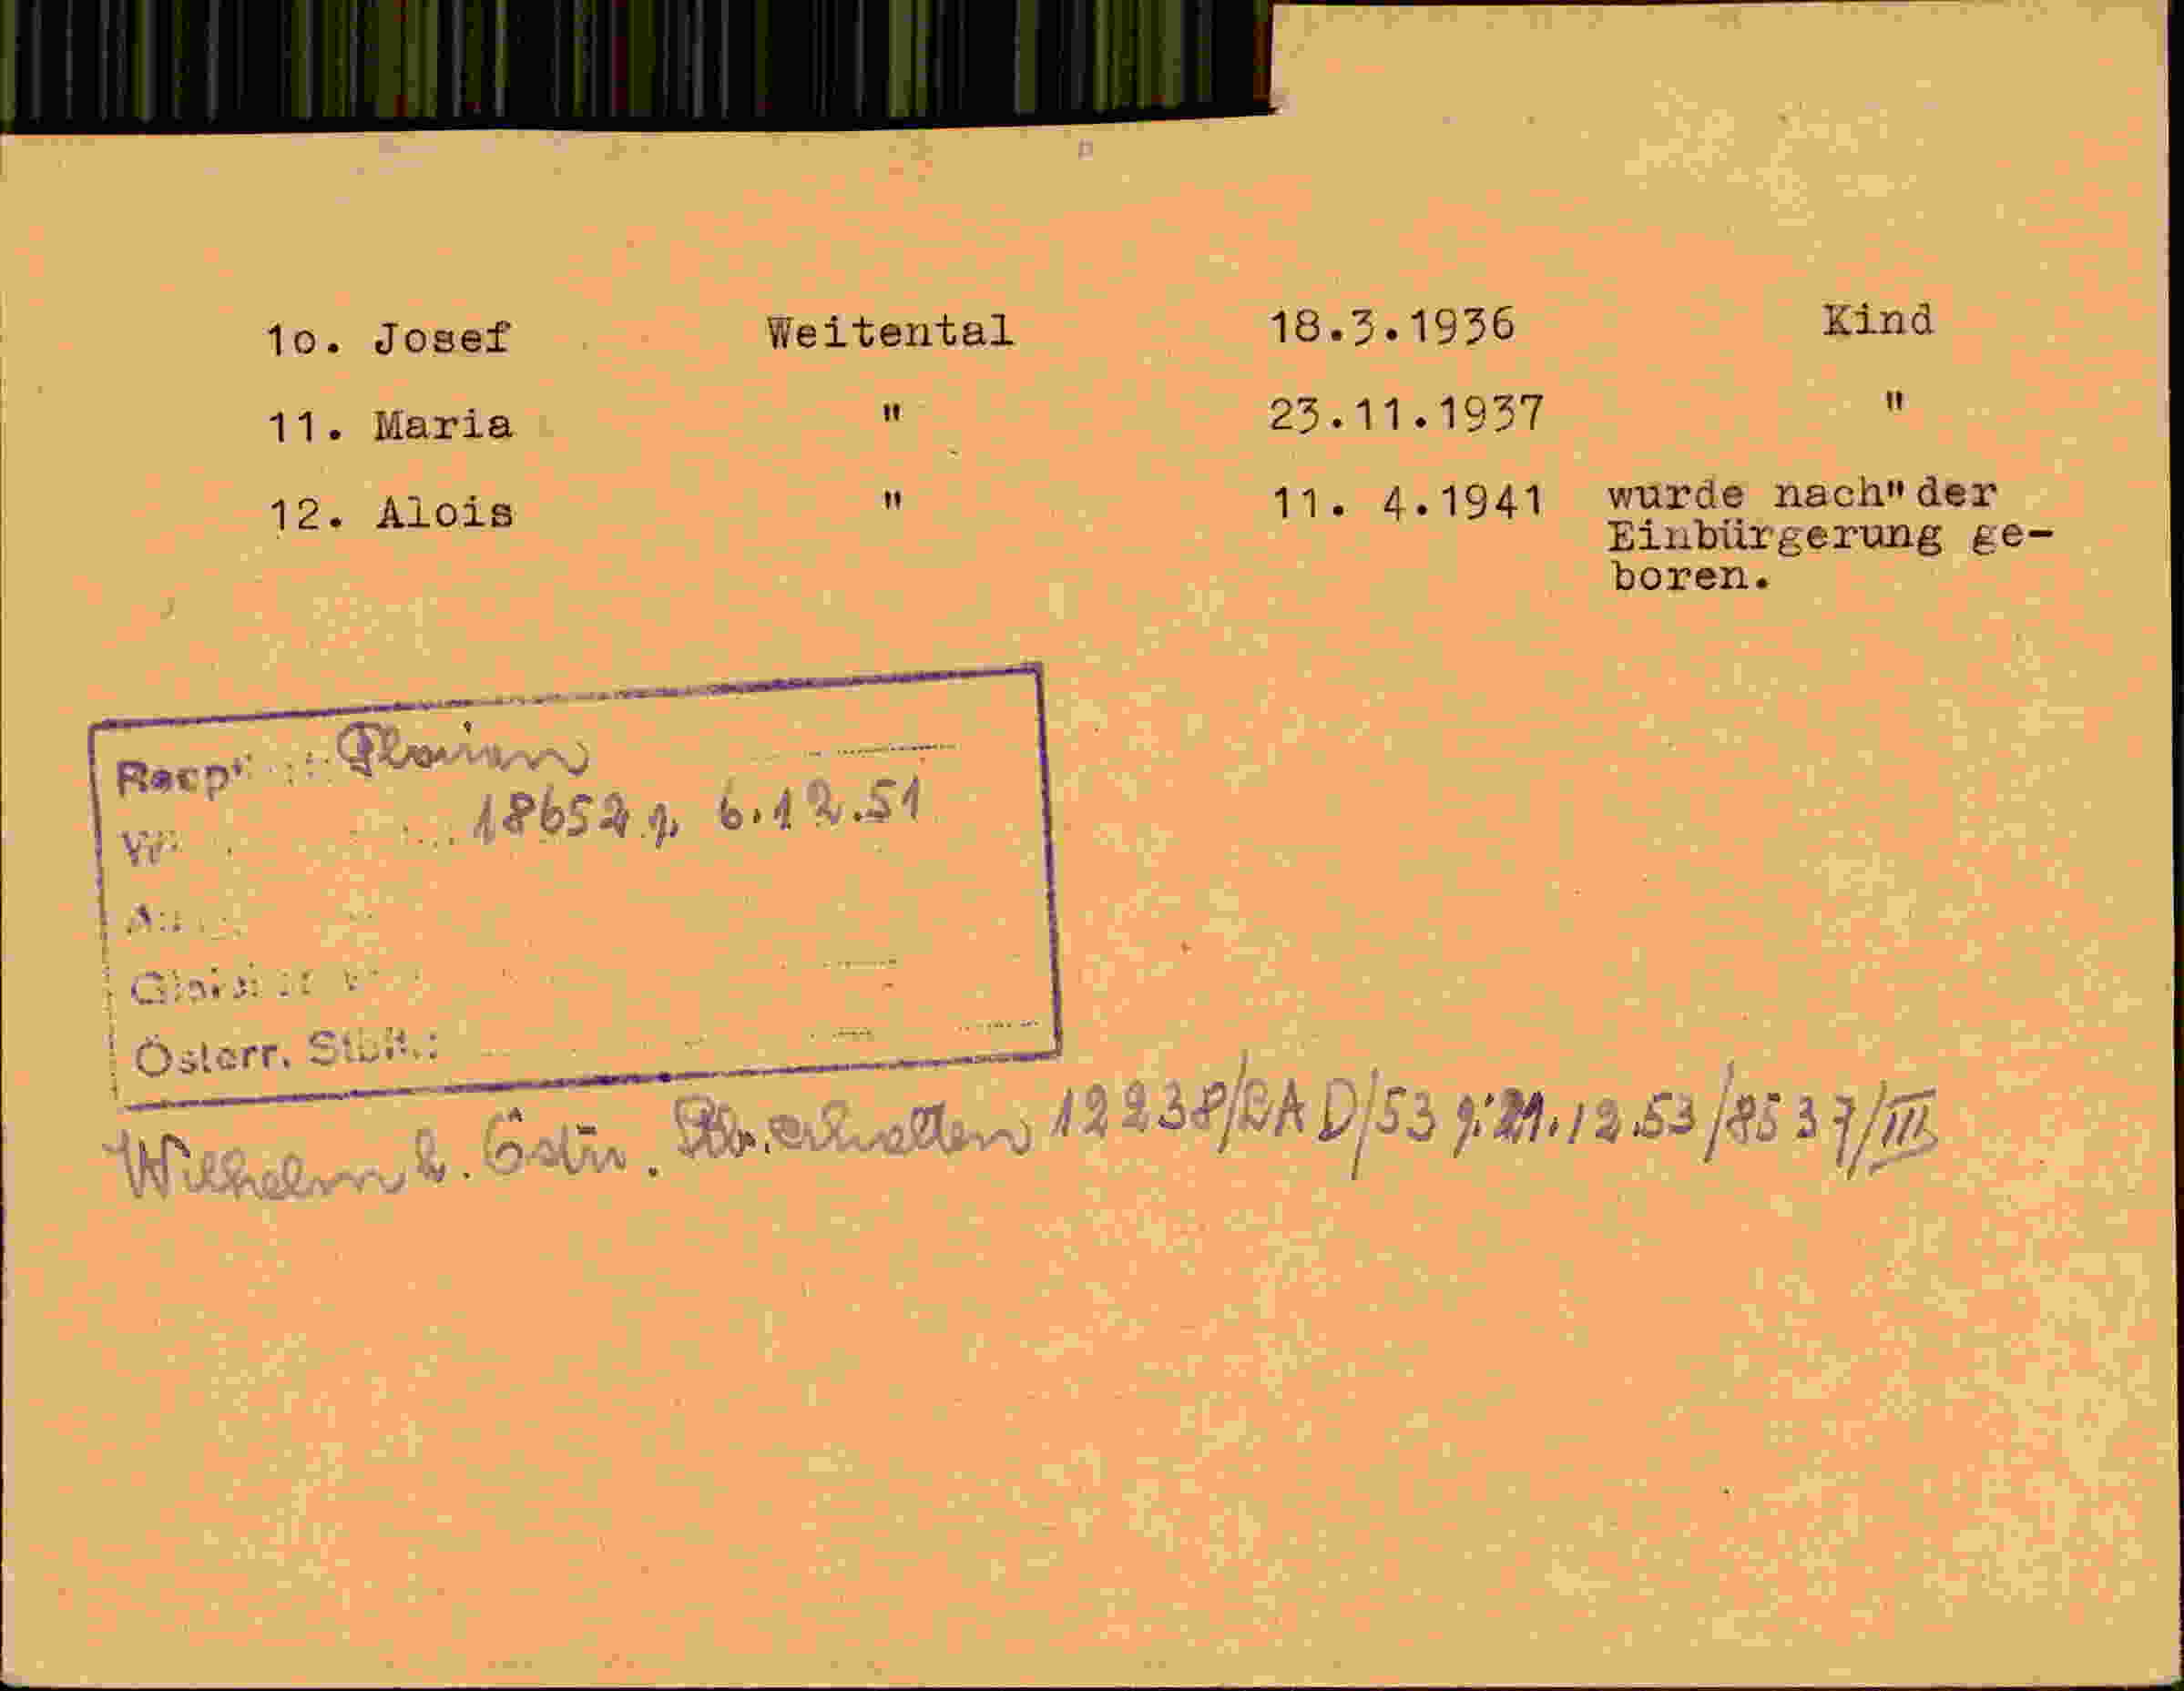 1o. Josef Weitental 18.3.1936 Kind
11. Maria " 23.11.1937 "
12. Alois " 11. 4.1941 wurde nach" der
Einbürgerung ge-
boren.
Florian
18652 g. 6.12.51
Österr. Stbft.:
Wilhelm h. Östr. Stb. erhalten 12238/BAD/53 g. 21.12.53/8537/III